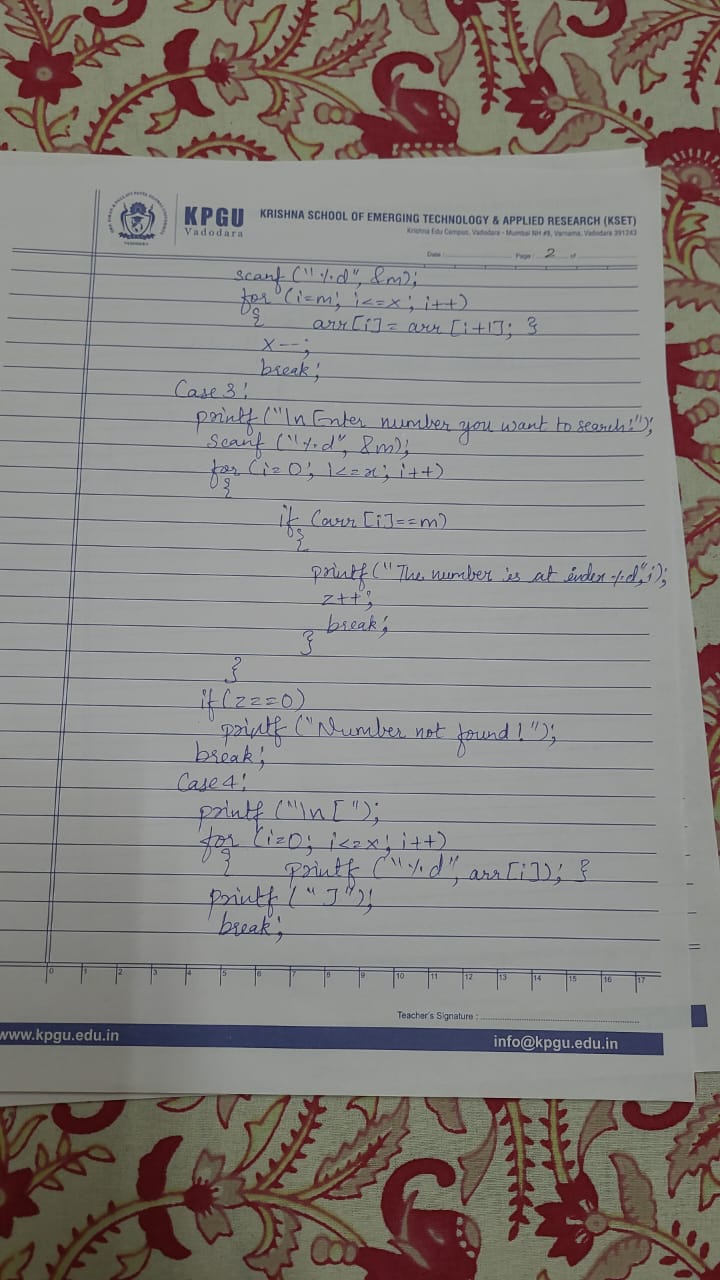 KPGU
Vadodara
KRISHNA SCHOOL OF EMERGING TECHNOLOGY & APPLIED RESEARCH (KSET)
Krishna Edu Campus, Vadodara - Mumbai NH #8, Varnama, Vadodara 391243
Date : Page : 2 of
scanf ("%d", &m);
for (i=m; i<=x; i++)
{ arr[i] = arr [i+1]; }
x--;
break;
Case 3:
printf ("\n Enter number you want to search:");
scanf ("%d", &m);
for (i=0; i<=x; i++)
{
if (arr [i]==m)
{
printf ("The number is at index %d",i);
z++;
break;
}
}
if (z==0)
printf ("Number not found!");
break;
Case 4:
printf ("\n [ ");
for (i=0; i<=x; i++)
{ printf ("%d", arr[i]); }
printf (" ]");
break;
0 1 2 3 4 5 6 7 8 9 10 11 12 13 14 15 16 17
Teacher's Signature :
www.kpgu.edu.in info@kpgu.edu.in